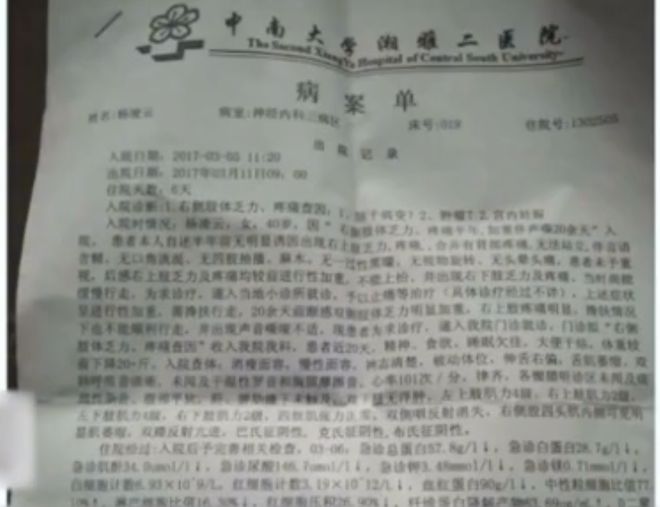 中南大学湘雅二医院
The Second XiangYa Hospital of Central South University
病案单
姓名:杨凌云 病室:神经内科二病区 床号:019 住院号:1302505
出院记录
入院日期: 2017-03-05 11:20
出院日期: 2017年03月11日09: 00
住院天数: 6天
入院诊断:1.右侧肢体乏力、疼痛查因: 肿瘤?2.宫内妊娠
入院时情况: 杨凌云, 女, 40岁, 因"右侧肢体乏力、疼痛半年, 加重伴声嘶20余天"入
院。 患者本人自述半年前无明显诱因出现右上肢乏力、疼痛,
重, 后感右上肢乏力及疼痛均较前进行性加重, 不能上抬, 并出现右下肢乏力及疼痛, 当时尚能
缓慢行走, 为求诊疗, 遂入当地小诊所就诊, 予以止痛等治疗(具体诊疗经过不详), 上述症状
呈进行性加重, 需搀扶行走, 20余天前断感双侧肢体乏力明显加重, 右上肢疼痛明显,
下也不能顺利行走, 并出现声音嘶哑不适, 现患者为求诊疗, 遂入我院门诊就诊, 门诊拟"右侧
肢体乏力、疼痛查因"收入我院我科, 患者近20天, 精神、食欲、睡眠欠佳, 大便干结, 体重较
前下降20+斤。入院查体: 消瘦面容, 慢性面容, 神志清楚, 被动体位, 伸舌右偏, 舌肌萎缩, 双
肺呼吸音清晰, 未闻及干湿性罗音和胸膜摩擦音, 心率101次/分, 律齐, 各瓣膜听诊区未闻及病
理性杂音, 双下肢无浮肿, 左上肢肌力4级, 右上肢肌力2级,
左下肢肌力4级, 右下肢肌力2级, 双侧咽反射消失, 右侧股四头肌内侧可见明
显肌萎缩, 双膝反射亢进, 巴氏征阴性, 克氏征阴性, 布氏征阴性。
住院经过:入院后予完善相关检查, 03-06, 急诊总蛋白57.8g/l↓, 急诊白蛋白28.7g/l↓,
急诊肌酐34.0umol/l↓, 急诊尿酸146.7umol/l↓, 急诊钾3.48mmol/l↓, 急诊镁0.71mmol/l↓,
白细胞计数6.93×10^9/L, 红细胞计数3.19×10^12/L↓, 血红蛋白90g/l↓, 中性粒细胞比值77.
10%↑, 淋巴细胞比值16.30%↓, 红细胞压积26.90%↓, 纤维蛋白降解产物